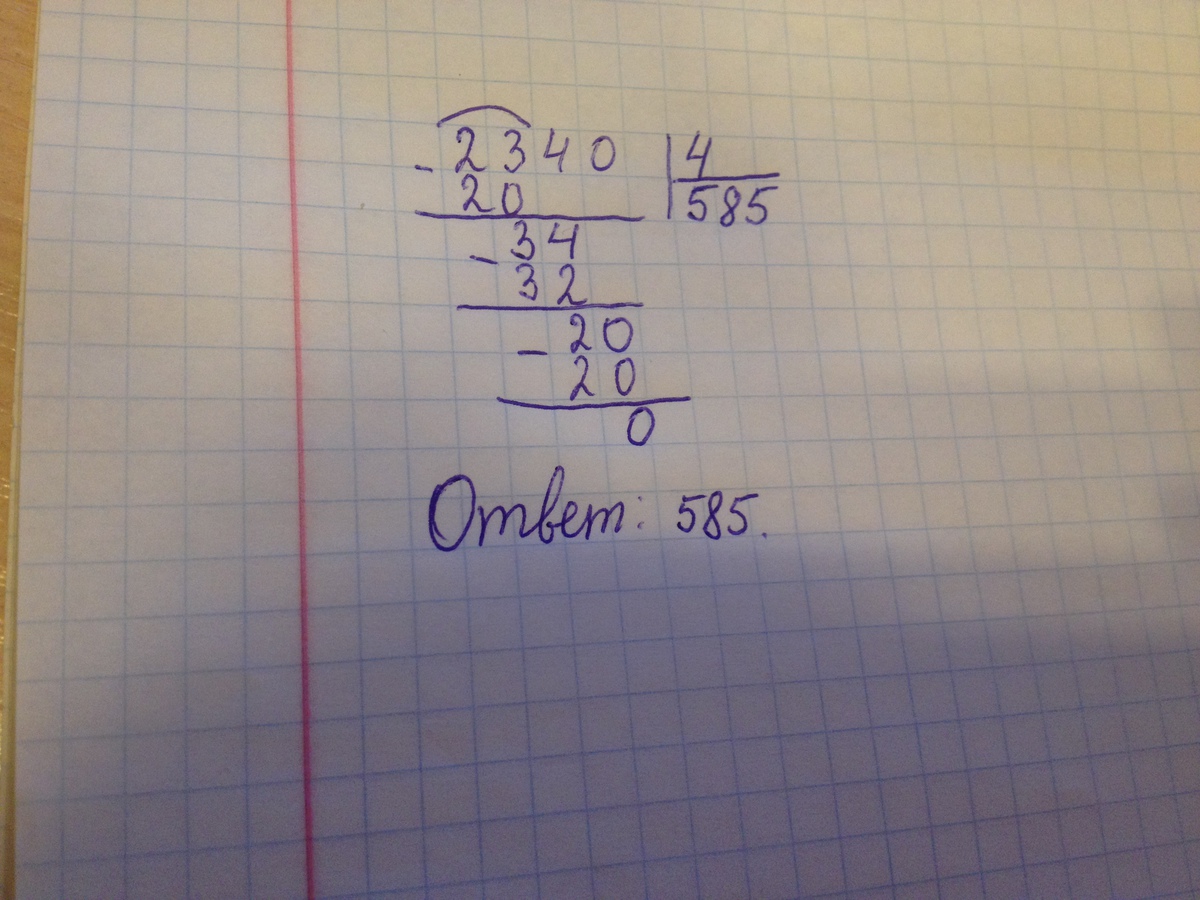 - 2340 | 4
20 | 585
- 34
32
- 20
20
0
Ответ: 585.